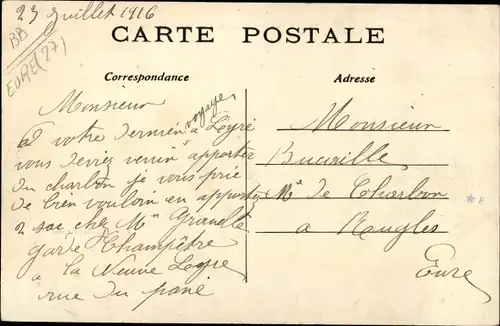 23 Juillet 1916
BB
EURE (27)
CARTE POSTALE
Correspondance
Adresse
Monsieur
a votre dernier voyage a Lyre
vous deviez venir apporter
du charbon je vous prie
de bien vouloir en apporter
2 sac chez Mr
garde Champêtre
a la Neuve Lyre
rue du
Monsieur
Bucaille
Md de Charbon
a Rugles
Eure